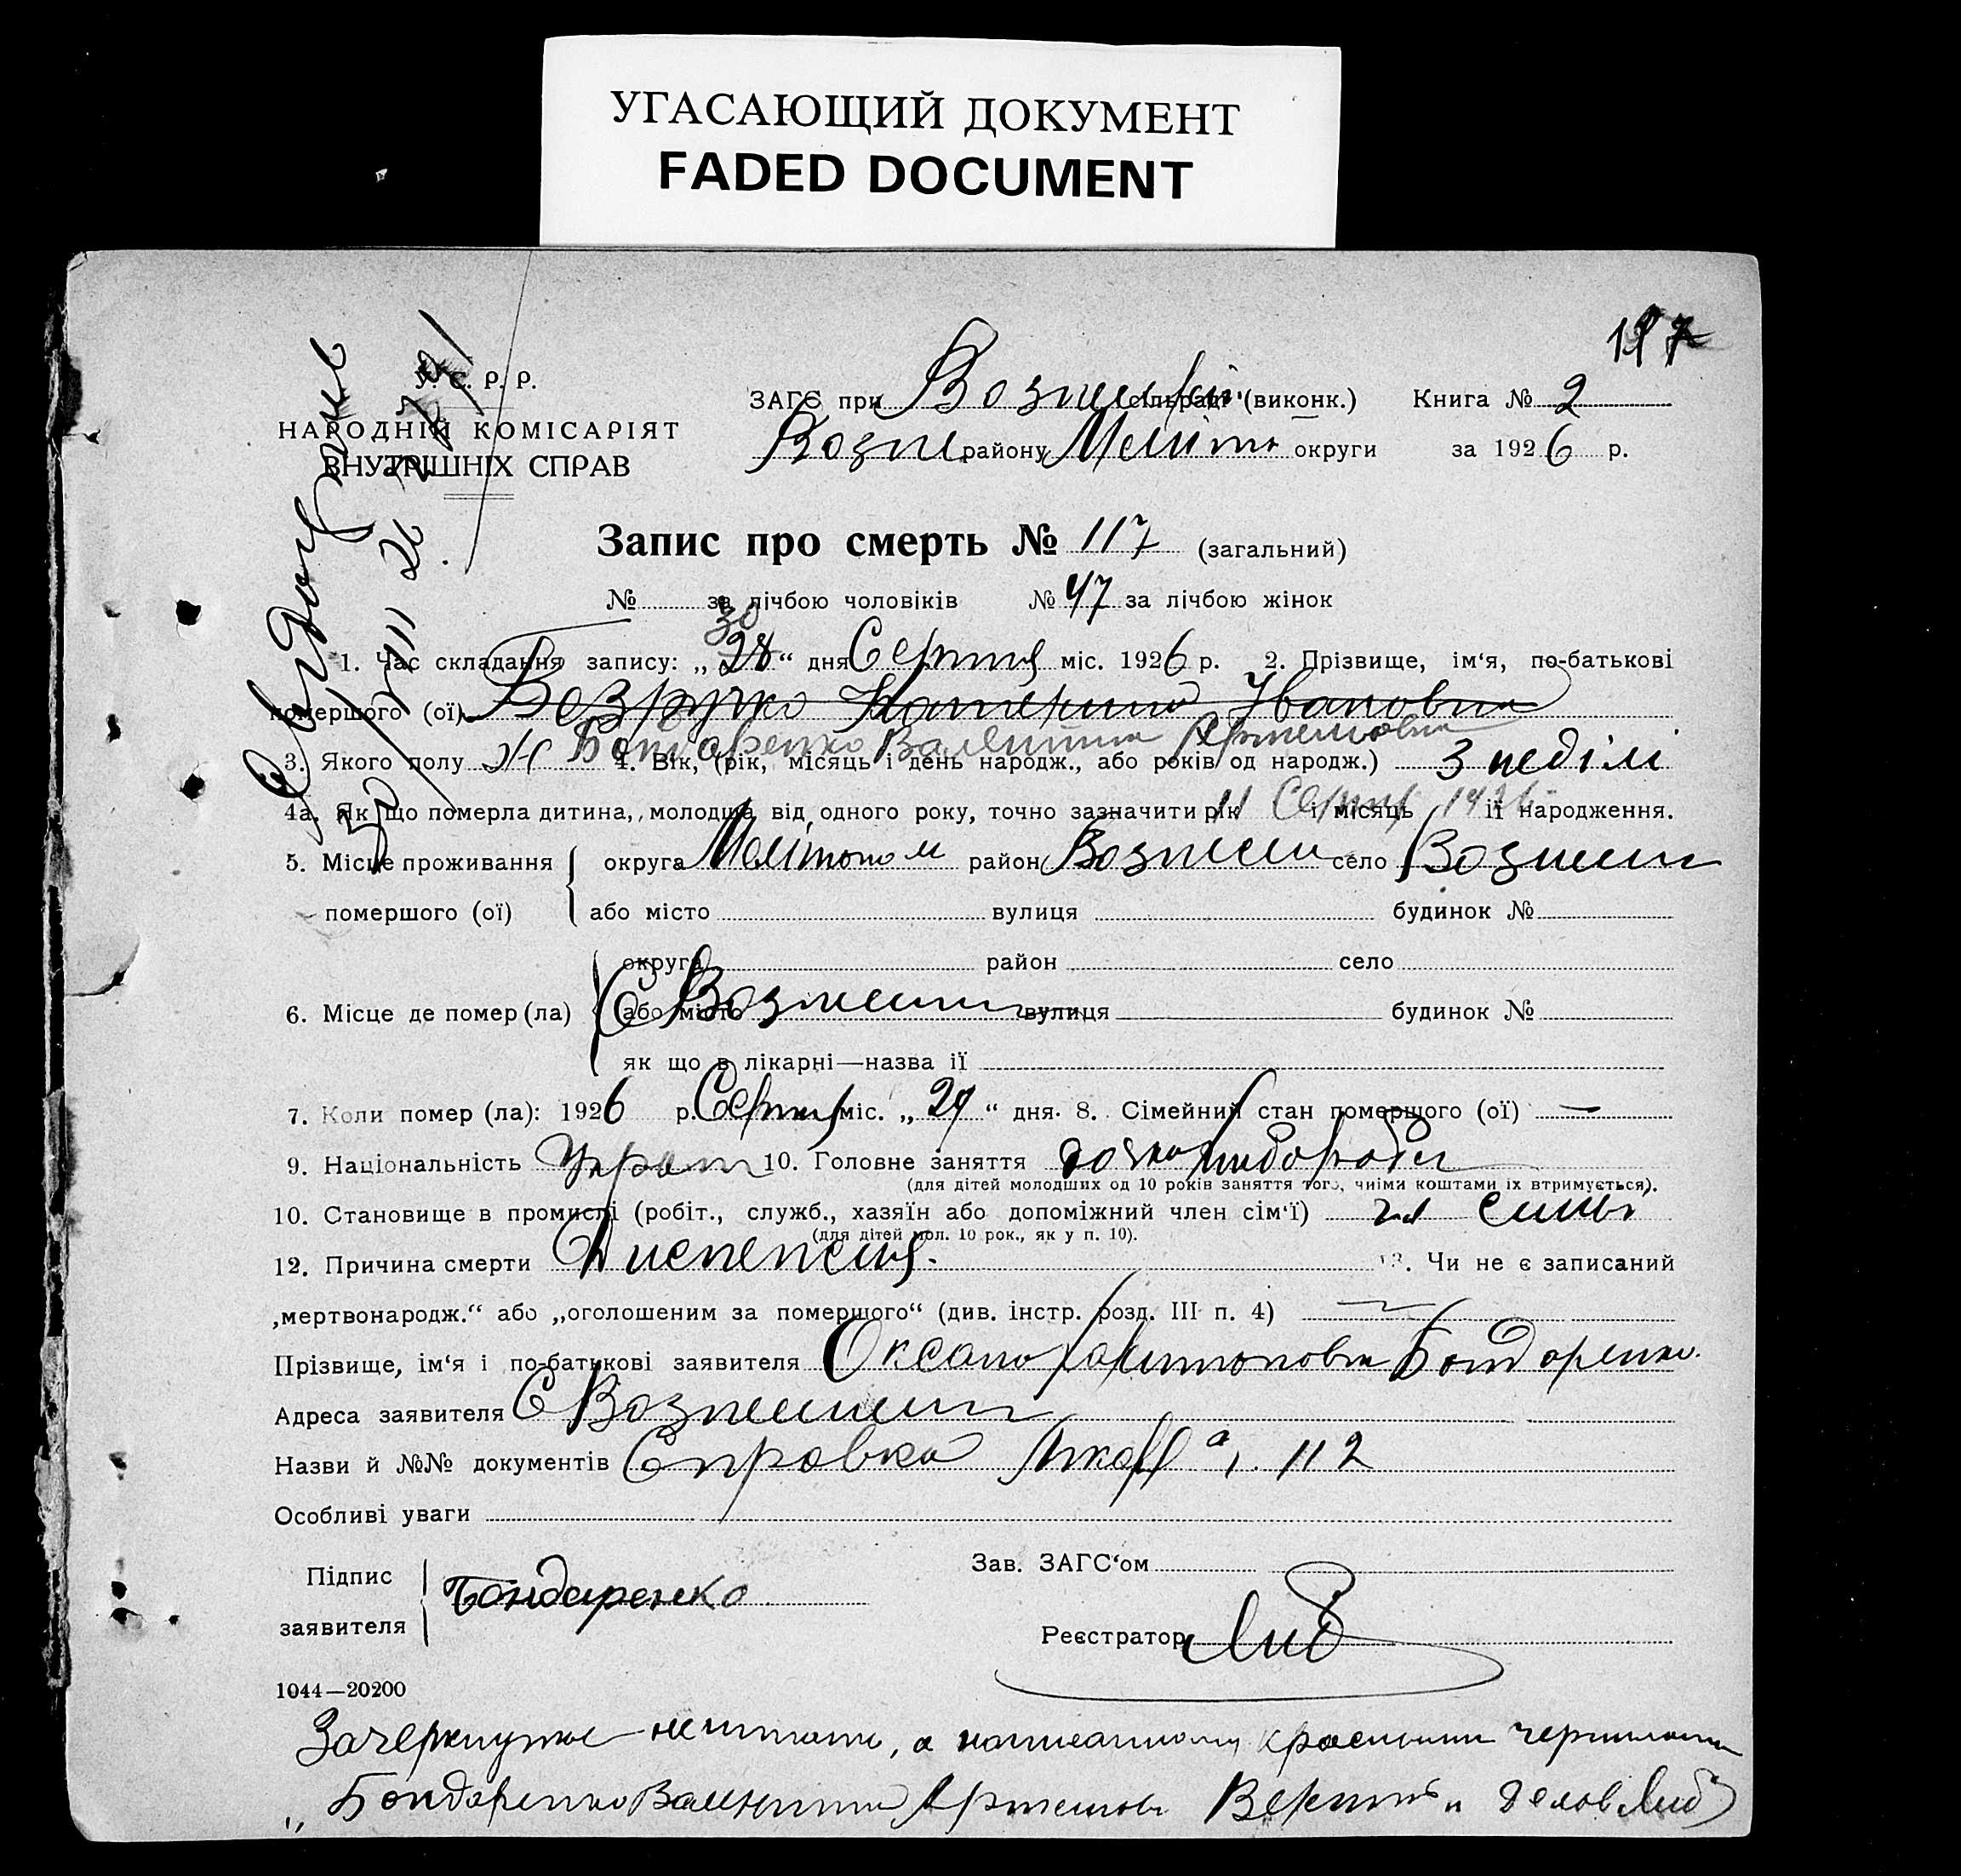 УГАСАЮЩИЙ ДОКУМЕНТ
FADED DOCUMENT
117
У. С. Р. Р.
НАРОДНІЙ КОМІСАРІЯТ
ВНУТРІШНІХ СПРАВ
ЗАГС при Вознесен сільраді (виконк.) Книга № 2
Возне району Меліто округи за 1926 р.
Запис про смерть № 117 (загальний)
№ за лічбою чоловіків № 47 за лічбою жінок
30
1. Час складання запису: „28“ дня Серпня міс. 1926 р. 2. Прізвище, ім‘я, по-батькові
помершого (ої) Безручко Катерина Івановна
Бондаренко Валентина Артемовна
3. Якого полу Ж 4. Вік, (рік, місяць і день народж., або років од народж.) 3 неділі
4а. Як що померла дитина, молодша від одного року, точно зазначити рік 11 Серпн і місяць 1926 її народження.
5. Місце проживання округа Мелітопол район Вознесен село Вознесен
помершого (ої) або місто вулиця будинок №
округа район село
6. Місце де помер (ла) або місто С Вознесен вулиця будинок №
як що в лікарні—назва її
7. Коли помер (ла): 1926 р. Серпня міс. „29“ дня. 8. Сімейний стан помершого (ої) —
9. Національність Украін 10. Головне заняття дочка хлібороба
(для дітей молодших од 10 років заняття того, чиїми коштами їх втримується).
10. Становище в промислі (робіт., служб., хазяїн або допоміжний член сім‘ї) чл сім‘ї
(для дітей мол. 10 рок., як у п. 10).
12. Причина смерти Диспепсия. 13. Чи не є записаний
„мертвонародж.“ або „оголошеним за помершого“ (див. інстр. розд. III п. 4) —
Прізвище, ім‘я і по-батькові заявителя Оксана Бондаренко
Адреса заявителя С Вознесен
Назви й №№ документів Справка 112
Особливі уваги
Підпис
заявителя Бондаренко
Зав. ЗАГС‘ом
Реєстратор
1044—20200
Зачеркнутое не читать, а написанному красными чернилами
„Бондаренко Валентина Артемов Верить“